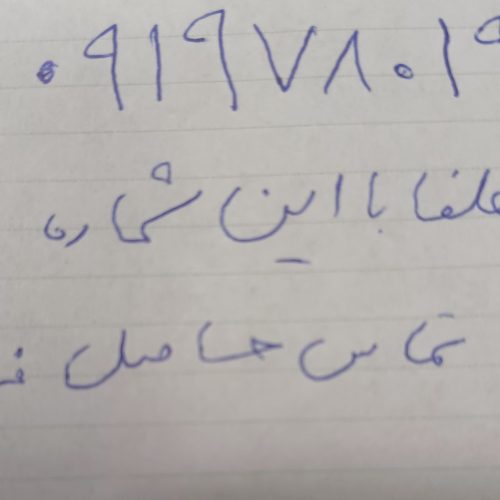 ۰۹۱۹۷۸۰۱۹
لطفا با این شماره
تماس حاصل